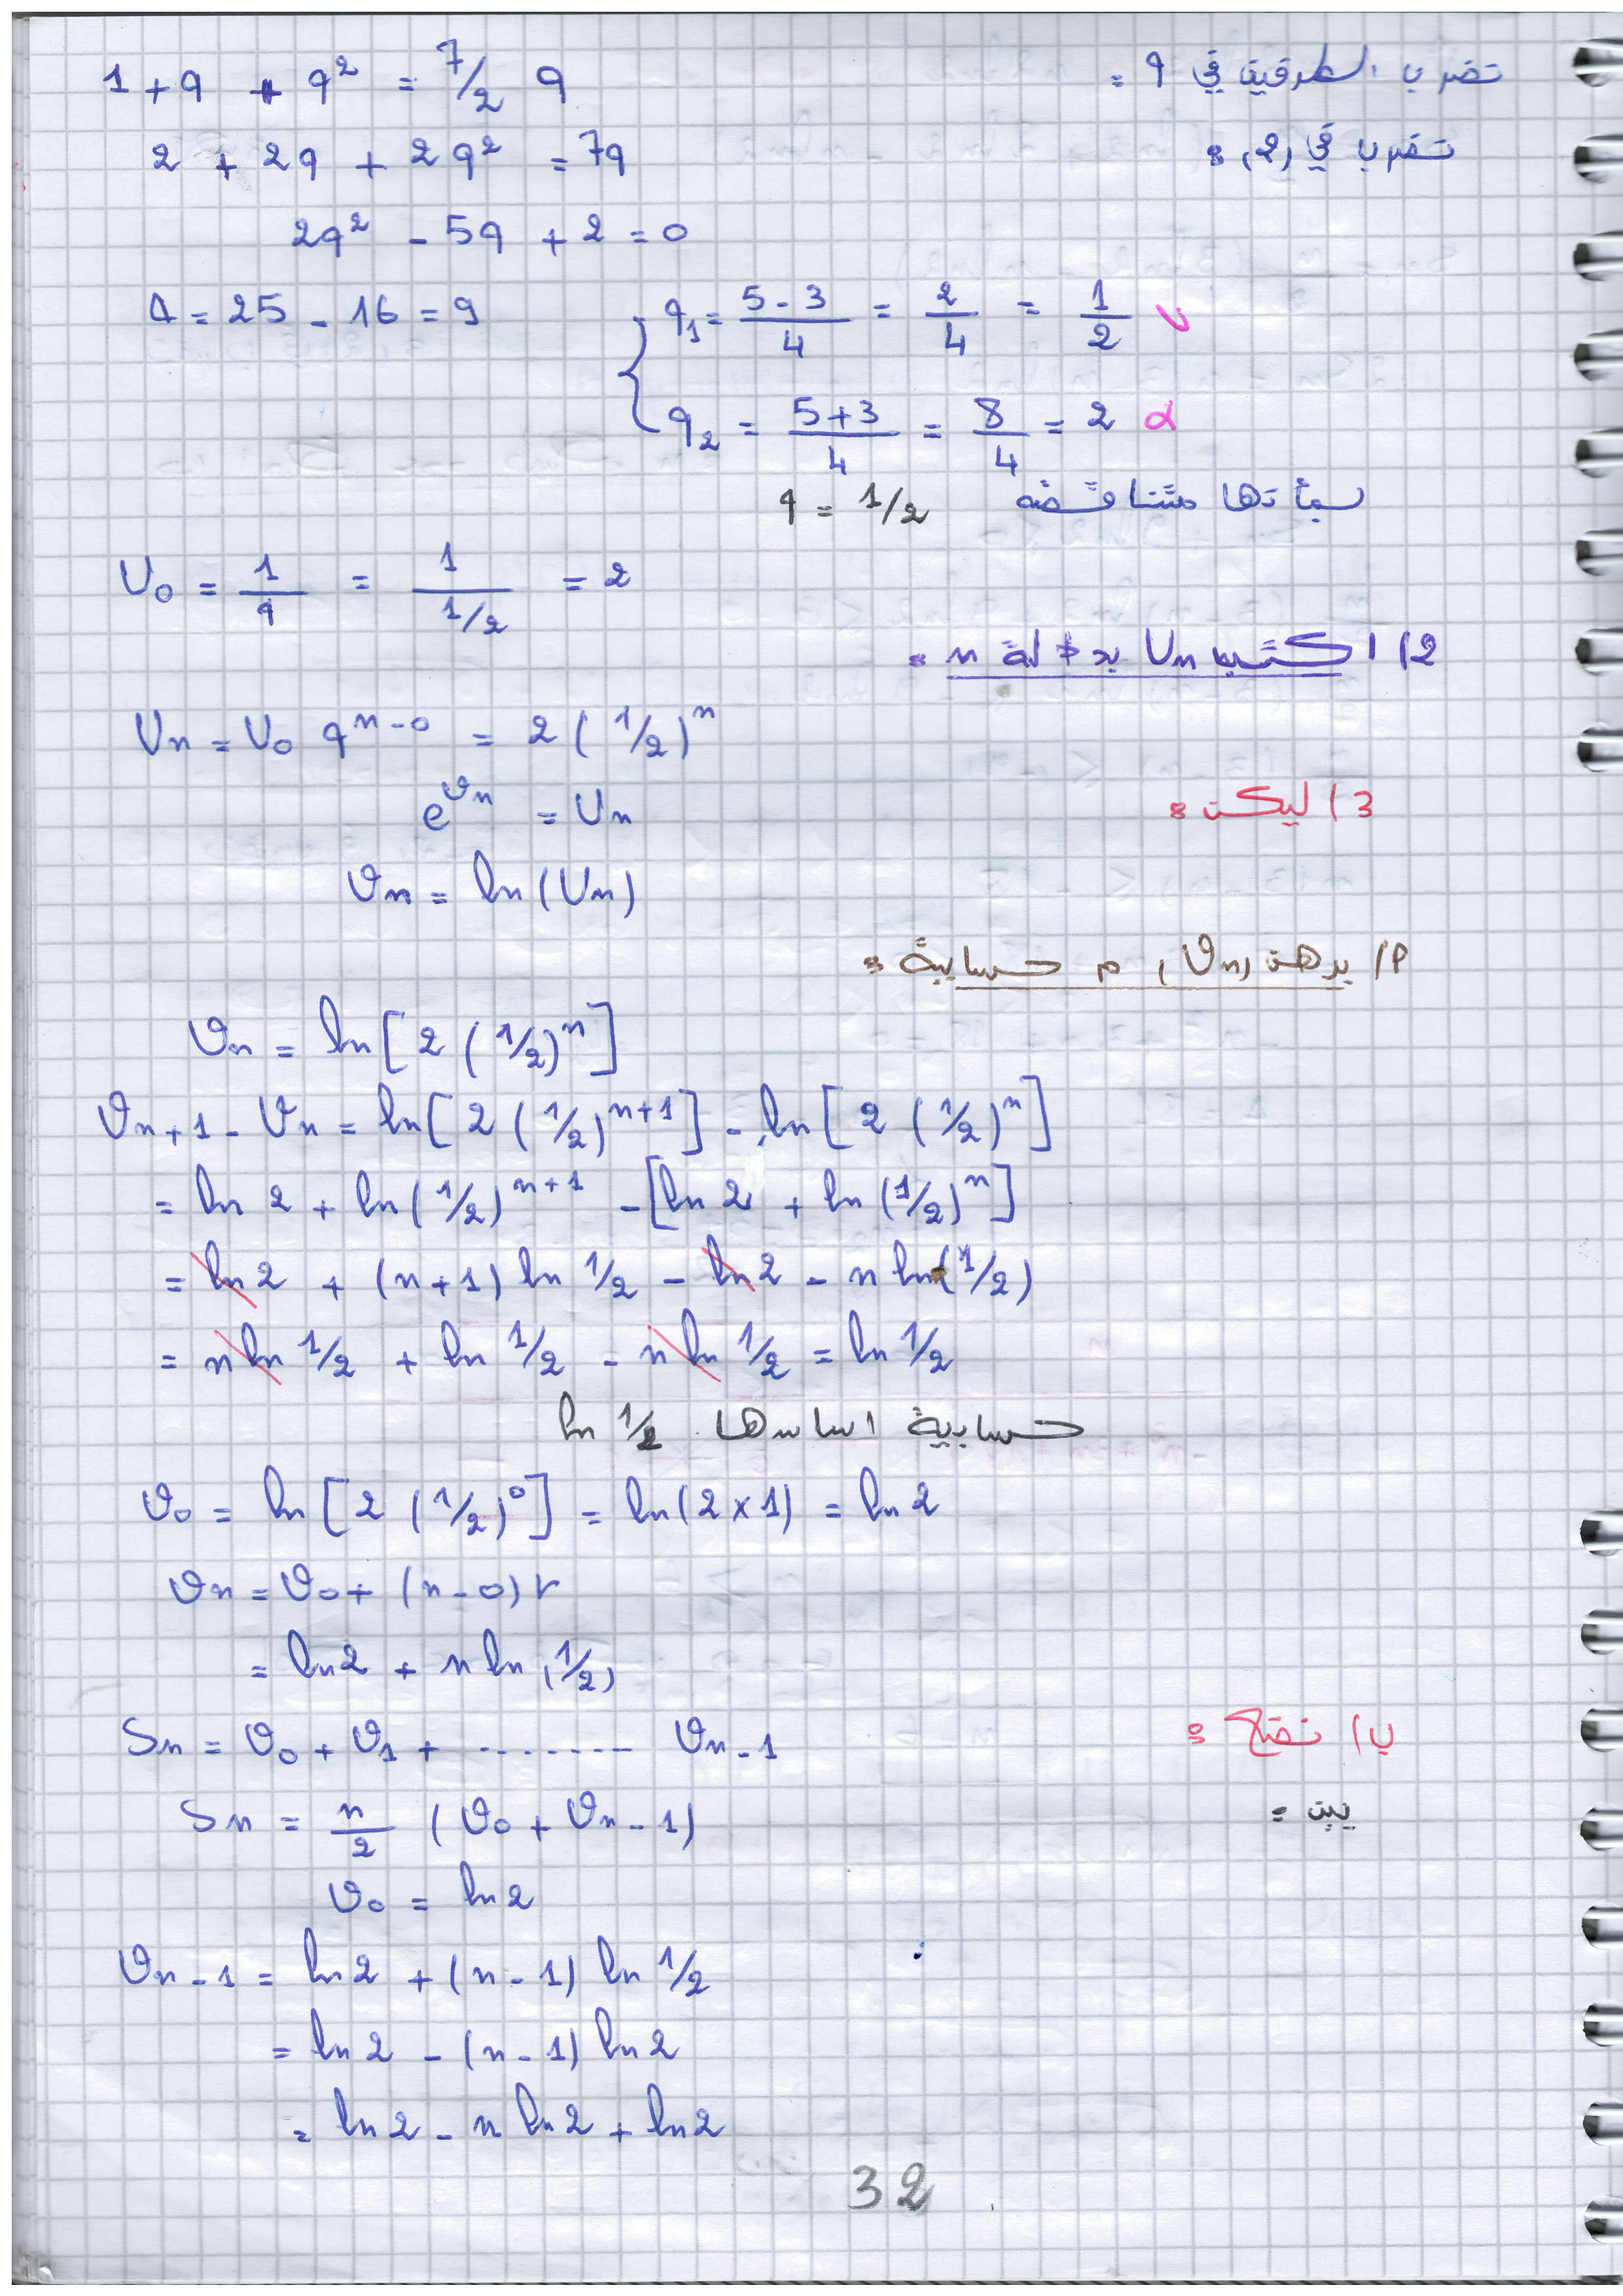 نضرب الطرفين في q : 1 + q + q² = 7/2 q
نضرب في (2) : 2 + 2q + 2q² = 7q
2q² - 5q + 2 = 0
Δ = 25 - 16 = 9 { q₁ = (5-3)/4 = 2/4 = 1/2 ✓
q₂ = (5+3)/4 = 8/4 = 2 x
بمأنها متناقصة q = 1/2
U₀ = 1/q = 1/(1/2) = 2
2) اكتب Un بدلالة n :
Un = U₀ q^(n-0) = 2 (1/2)^n
3) ليكن : e^(vn) = Un
vn = ln (Un)
أ) برهن (vn) م حسابية :
vn = ln [2 (1/2)^n]
vn+1 - vn = ln [2 (1/2)^(n+1)] - ln [2 (1/2)^n]
= ln 2 + ln (1/2)^(n+1) - [ln 2 + ln (1/2)^n]
= ln 2 + (n+1) ln 1/2 - ln 2 - n ln (1/2)
= n ln 1/2 + ln 1/2 - n ln 1/2 = ln 1/2
حسابية اساسها ln 1/2
v₀ = ln [2 (1/2)^0] = ln (2 x 1) = ln 2
vn = v₀ + (n-0) r
= ln 2 + n ln (1/2)
ب) نضع : Sn = v₀ + v₁ + ........ vn-1
بين : Sn = n/2 (v₀ + vn-1)
v₀ = ln 2
vn-1 = ln 2 + (n-1) ln 1/2
= ln 2 - (n-1) ln 2
= ln 2 - n ln 2 + ln 2
32